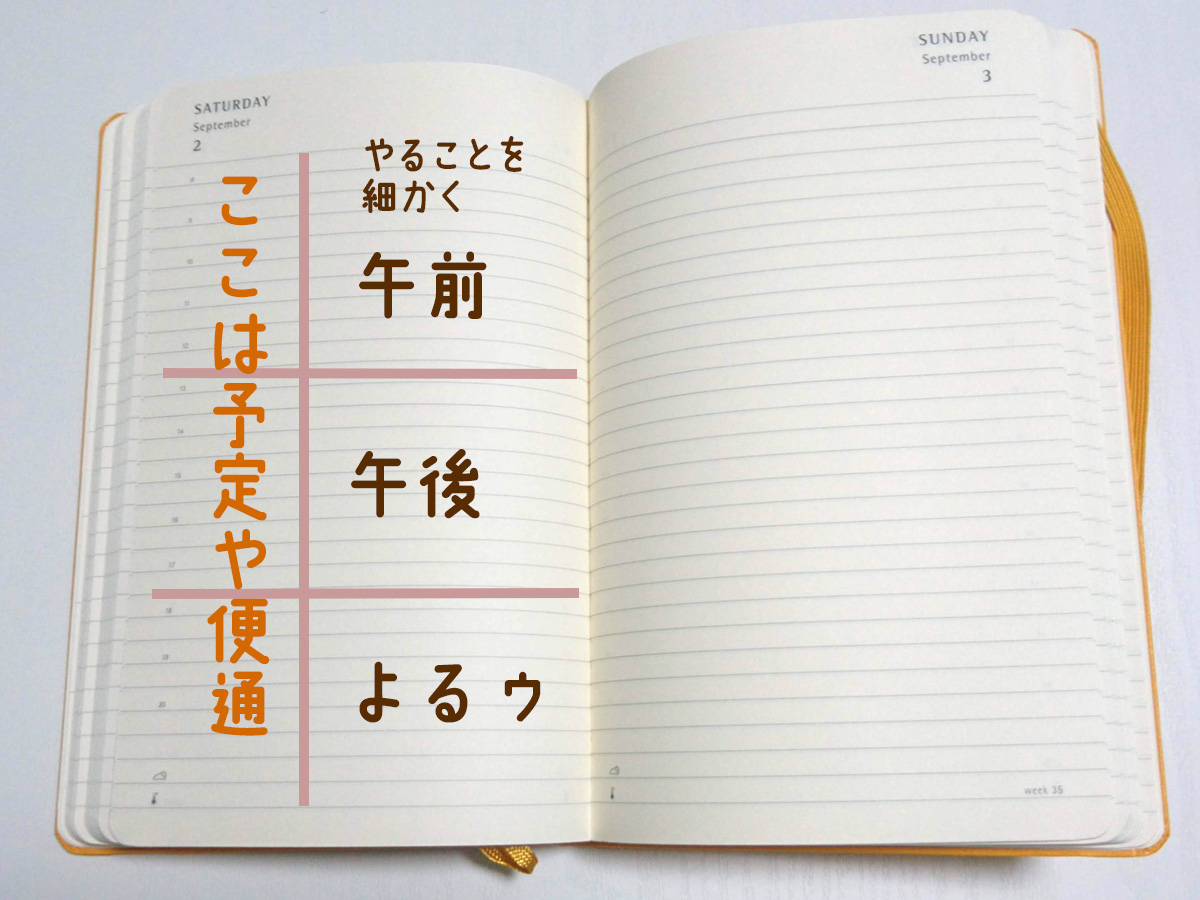 SATURDAY
September
2
ここは予定や便通
やることを
細かく
午前
午後
よるゥ
8
9
10
11
12
13
14
15
16
17
18
19
20
SUNDAY
September
3
week 35